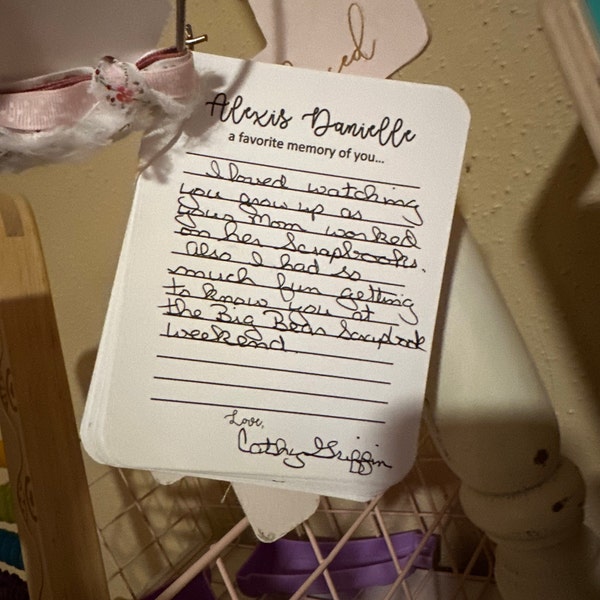 Alexis Danielle
a favorite memory of you...
I loved watching
you grow up as
your Mom worked
on her Scrapbooks.
Also I had so
much fun getting
to know you at
the Big Bear Scrapbook
weekend.
Love,
Cathy Griffin